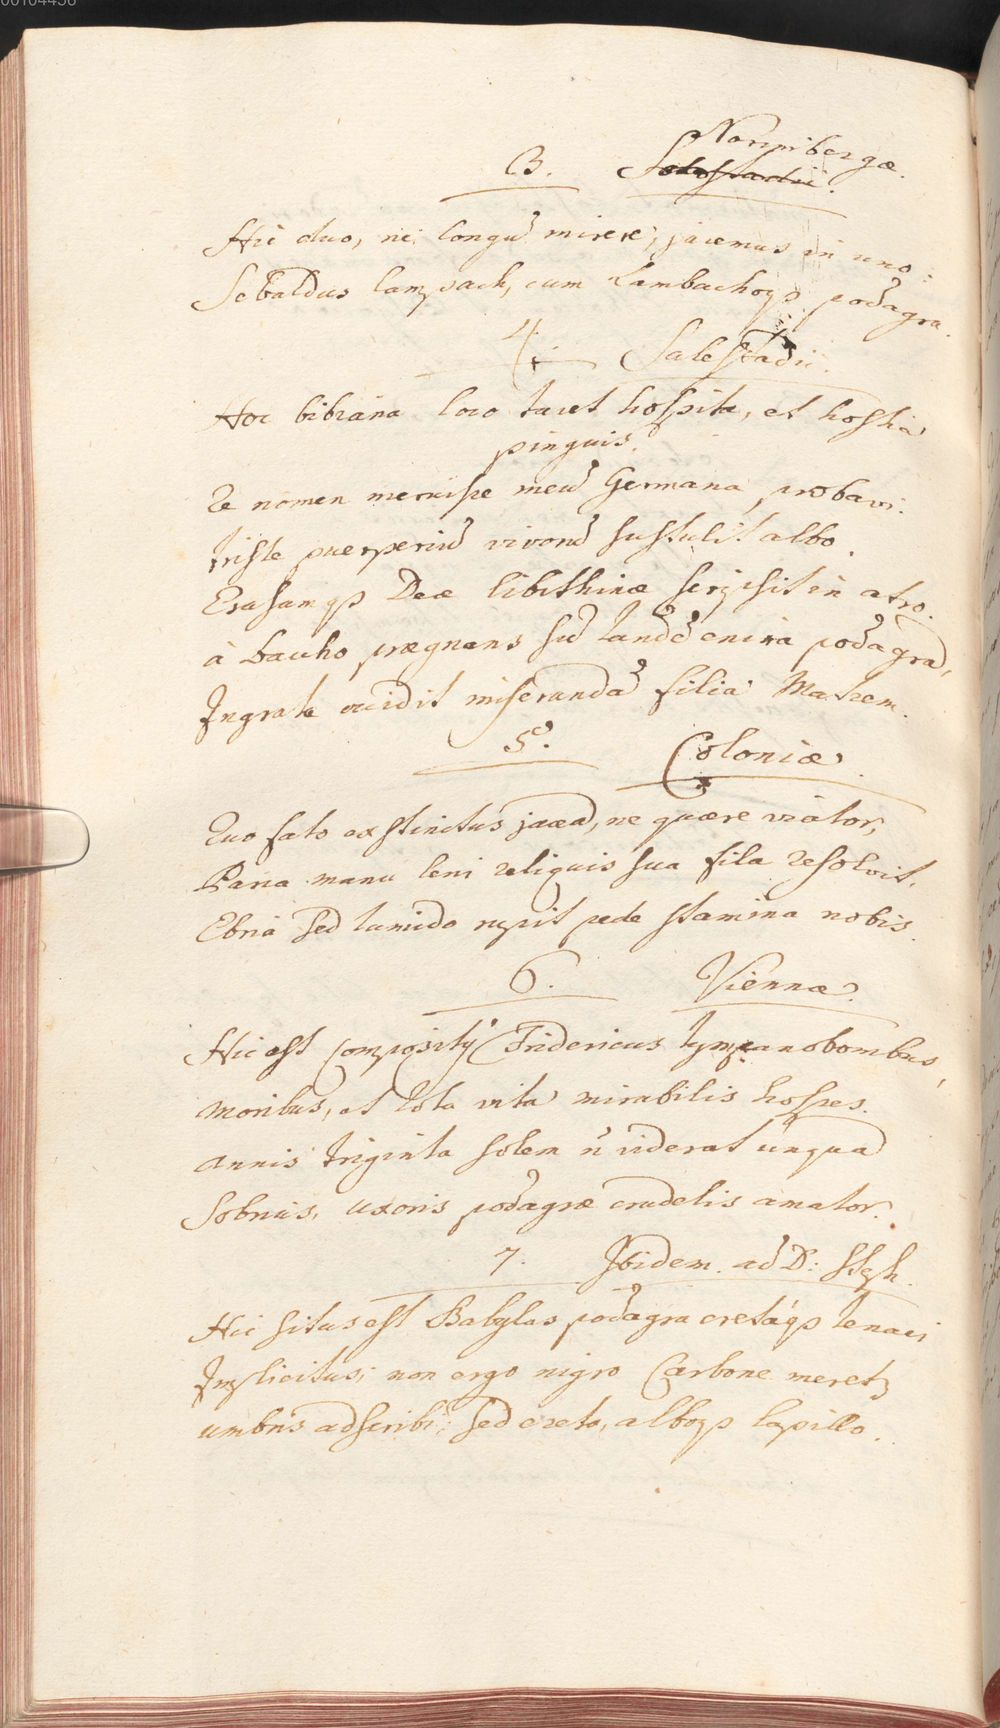 00104436
3. Norimbergæ.
Hic duo, ne longũ mirere, jacemus in uno:
Sebaldus Lampsach, cum Lambachoqȝ podagra.
4. Salestadii.
Hoc bibiana loco tacet hospita, et hostia
pinguis.
Te nomen meruisse meũ Germana probavi.
triste puerperiũ vivorũ sustulit albo.
Erasamqȝ Deæ libithinæ scripsit in atro.
à baccho prægnans sũ tandẽ enixa podagrã,
Ingrata occidit miserandã filia Matrem.
5. Coloniæ.
Quo fato exstinctus jaceã, ne quære viator,
Parca manu leni reliquis sua fila resolvit,
Ebria sed tumido rupit pede stamina nobis.
6. Viennæ.
Hic est Compositꝰ Fridericus tympanobombus,
moribus, et tota vita mirabilis hospes.
annis triginta solem ñ viderat unquã
Sobrius, uxoris podagræ crudelis amator.
7. Ibidem. ad D: Steph.
Hic situs est Babylas podagra cretáqȝ tenaci
Implicitus; non ergo nigro Carbone meretȝ
umbris adscribi; sed creta, alboqȝ lapillo.